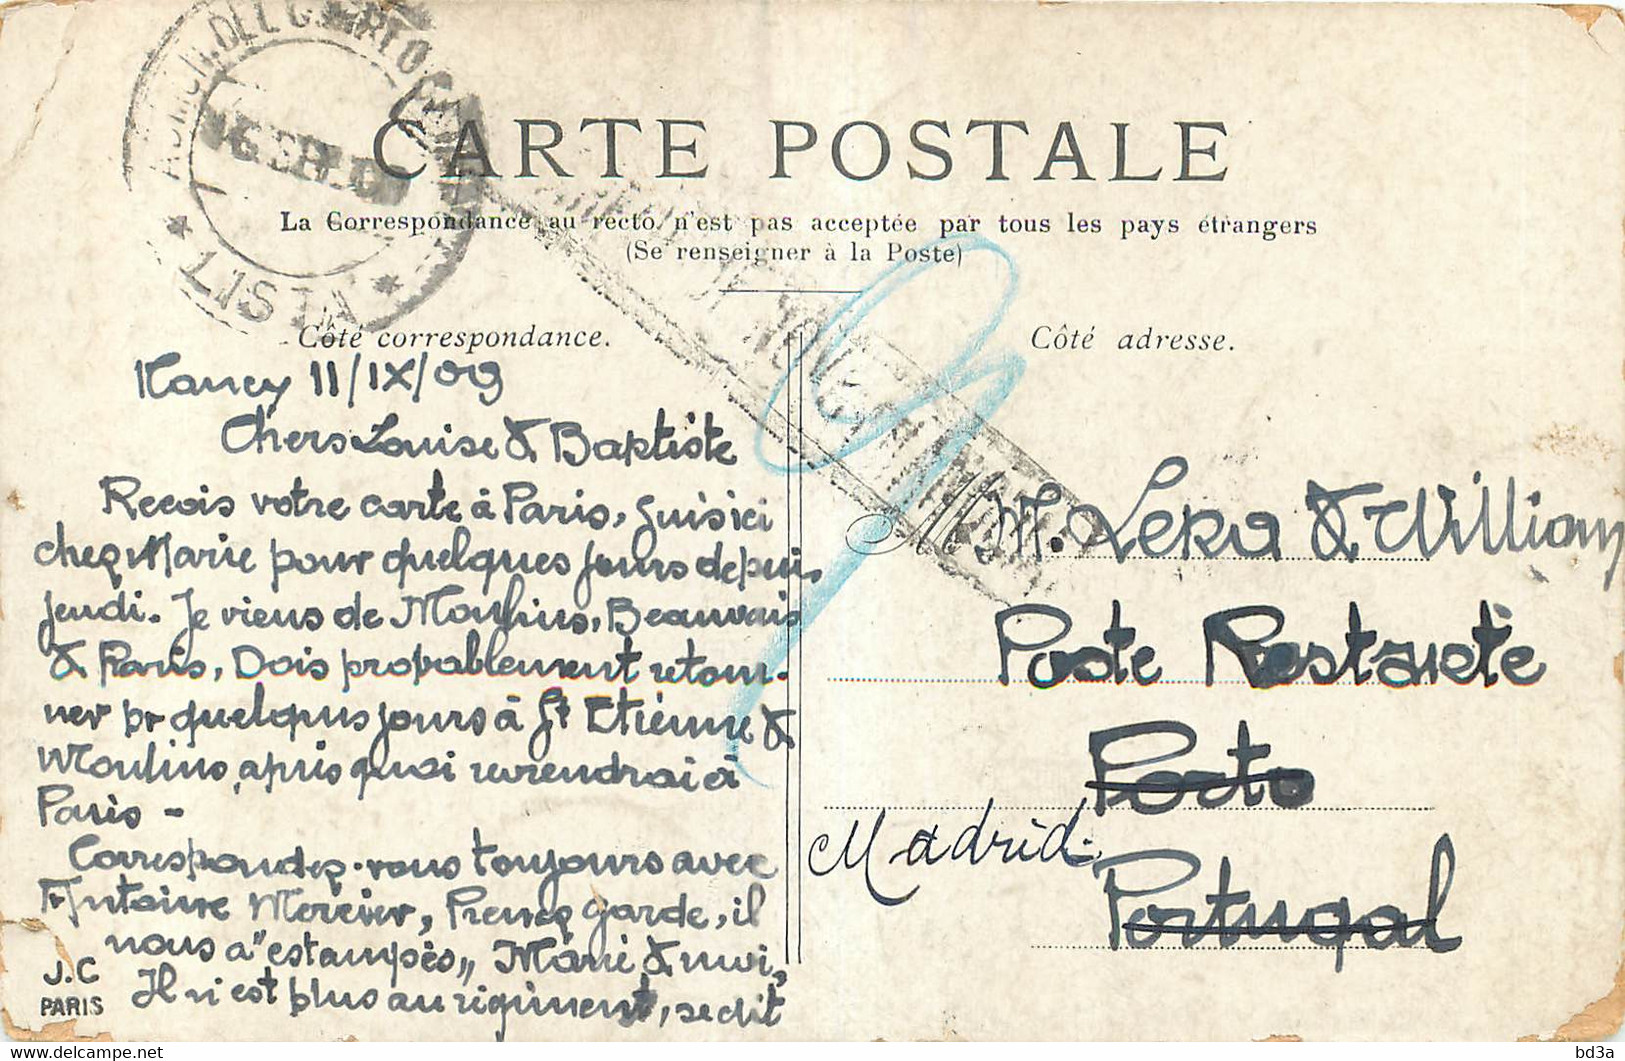 CARTE POSTALE
La Correspondance au recto n'est pas acceptée par tous les pays étrangers
(Se renseigner à la Poste)
LISTA
Côté correspondance.
Côté adresse.
Nancy 11/IX/09
Chers Louise & Baptiste
Recois votre carte à Paris, suis ici
chez Marie pour quelques jours depuis
jeudi. Je viens de Moulins, Beauvais
& Paris, Dois probablement retour-
ner pr quelques jours à St Etienne &
Moulins, après quoi reviendrai à
Paris -
Correspondez-vous toujours avec
Antoine Mercier, Prenez garde, il
nous a "estampés" Marie & moi,
Il n'est plus au régiment, se dit
M. Leka & William
Poste Restante
Porto
Madrid.
Portugal
J.C
PARIS
bd3a